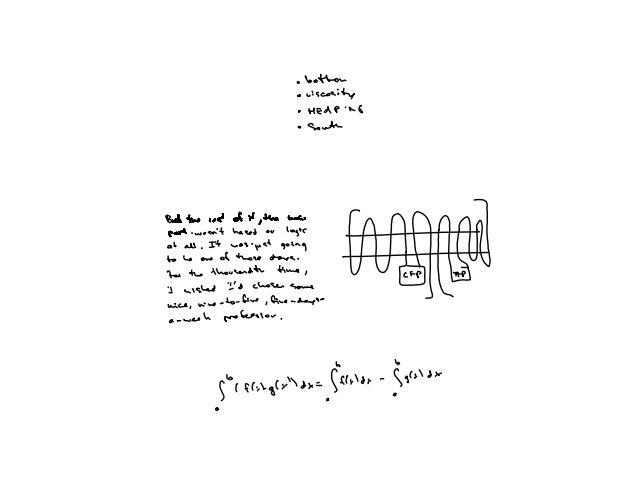 • bottom
• viscosity
• HEdP '76
• South
But the rest of it, the main
part wasn't based on logic
at all. It was just going
to be one of those days.
For the thousandth time,
I wished I'd chosen some
nice, nine-to-five, five-days-
a-week profession.
CFP
∫ₐᵇ (f(x) g(x)) dx = ∫ₐᵇ f(x) dx - ∫ₐᵇ g(x) dx